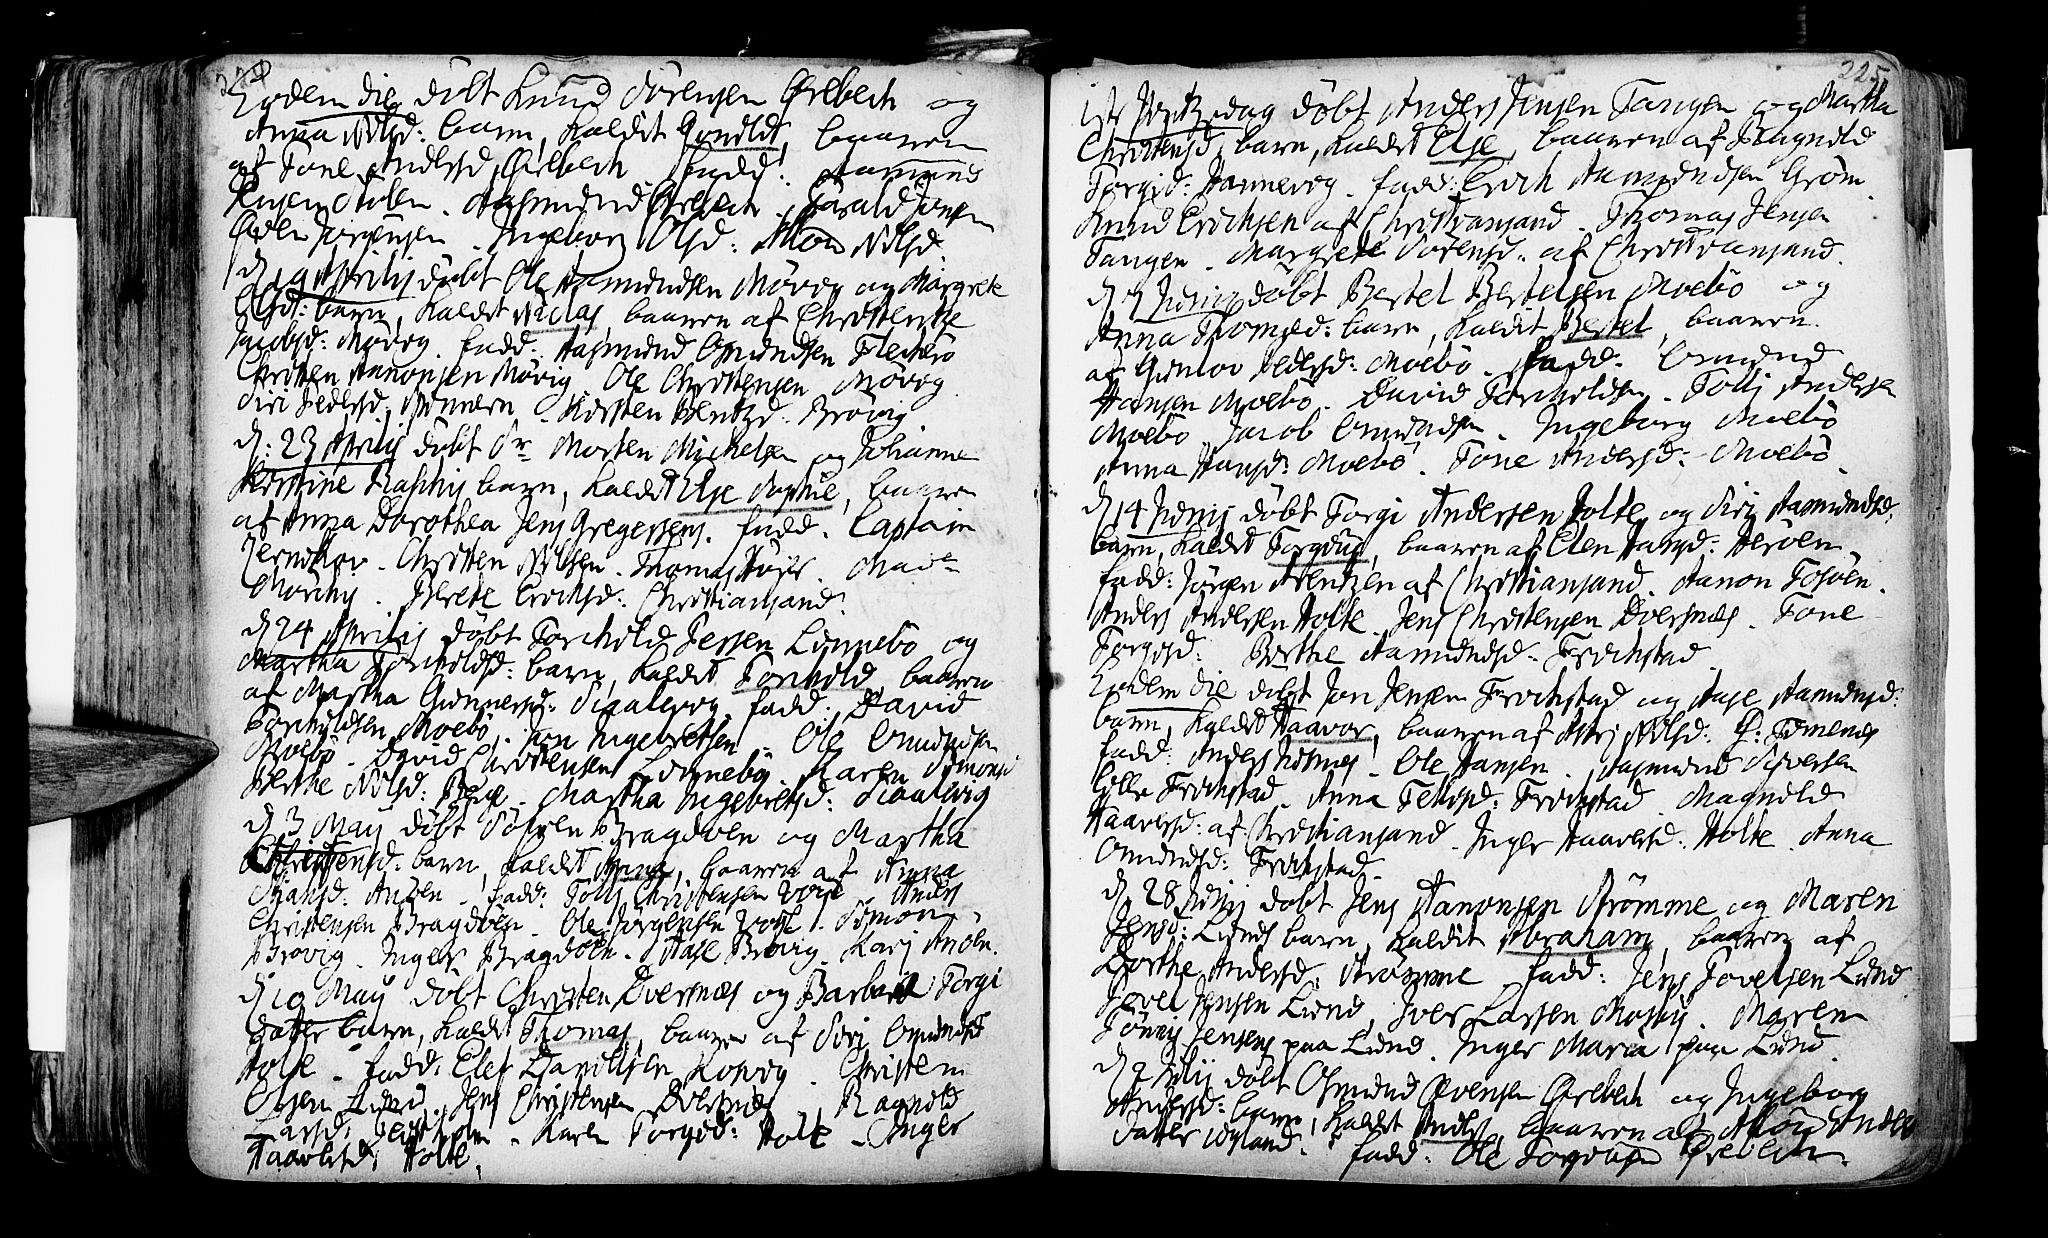 224
Eodem die döbt Knud Sörensen Ørebech og
Anna Nilsd: barn, kaldet Gunild, baaren
af Tone Andersd Ørebech. fadd: Aamund
Jensen Aasen. Aasmund Ørebech. Harald Jonsen
Øven Jörgensen. Ingeborg Olsd: Aslou Nilsd:
d 19 Aprilis döbt Ole Aamundsen Mövig og Margrete
Olsd: barn, kaldet Niclas, baaren af Christenche
Jacobsd: Mövig. fadd: Aasmund Omundsen Flecherö
Christen Aanonsen Mövig. Ole Christensen Mövig
Siri Pedersd. Kirsten Bentzd: Brövig
d: 23 Aprilis döbt Sr Morten Michelsen og Johanne
Kirstine Raschis barn, kaldet Else Sophie, baaren
af Anna Dorothea Jens Gregersens. fadd. Captain
Christen Nilsen. Thomas Höyer. Made
Mörchs. Berete Erichsd: Christiansand.
d 24 Aprilis döbt Torchild Jessen Linnebö og
Martha Torchildsd: barn, kaldet Torchild, baaren
af Martha Gunnersd: Skaalevig. fadd: David
Torchildsen Moebö. Jon Ingebretsen. Ole Omundsen
Moebö. David Christensen Linnebö. Maren Simonsd
Berthe Nilsd: Berge. Martha Ingebretsd: Skaalevig
d 3 May döbt Sören Bragdöen og Martha
Christensd: barn, kaldet Anna, baaren af Anna
Hansd: Andöen. fadd: Tolls Christensen Voje. Anders
Christensen Bragdöen. Ole Jörgensen Voje. Simon
Brövig. Inger Bragdöen. Aase Brövig. Karj Andöen.
d 10 May döbt Christen Dversnæs og Barbara Torgi
datter barn, kaldet Thomas, baaren af Siri Omundsd
Holte. fadd: Elef Danielsen Kosvig. Christen
Olsen Lund. Jens Christensen Dversnæs. Ragnild
Larsd: Karen Torgisd: Holte. Inger
Haavorsd: Holte.
225
1ste Pintzedag döbt Anders Jensen Tangen og Martha
Christensd, barn, kaldet Else, baaren af Ragnild
Torgisd: Hannevig. fadd: Erich Aamundsen Gröm.
Knud Erichsen af Christiansand. Thomas Jensen
Tangen. Margrete Sörensd: af Christiansand.
d 7 Junij döbt Bertel Bertelsen Moebö og
Anna Thomasd: barn, kaldet Bertel, baaren
af Gunlov Pedersd: Moebö. fadd: Omund
Hansen Moebö. David Torchildsen. Tolls Andersen
Moebö. Jacob Omundsen. Ingeborg Moebö
Anna Hansd: Moebö. Tone Andersd: Moebö.
d 14 Junij döbt Torgi Andersen Holte og Siri Aamundsd:
barn, kaldet Torgius, baaren af Elen Hansd: Heröen.
fadd: Jörgen Arentzen af Christiansand. Aanon Fosöen.
Anders Andersen Holte. Jens Christensen Dversnæs. Tone
Torgisd: Berthe Aamundsd: Frichstad
Eodem die döbt Jon Jensen Frichstad og Aase Aamundsd:
barn, kaldet Haavor, baaren af Astrj Nilsd: Ø: Timenes
fadd: Anders Timenes. Ole Hansen. Aasmund Syversen
lille Frichstad. Anna Tellefsd: Frichstad. Magnild
Haavorsd: af Christiansand. Inger Haavorsd: Holte. Anna
Omundsd: Frichstad.
d 28 Junij döbt Jens Aanonsen Strömme og Maren
Jensd: Lunds barn, kaldet Abraham, baaren af
Dorthe Andersd: Strömme. fadd: Jens Tovelsen Lund
Tovel Jensen Lund, Iver Larsen Mosby. Maren
Tönnis Jensens paa Lund. Inger Maria paa Lund.
d 2 Julij döbt Osmund Øvensen Ørebech og Ingeborg
Andersd: barn, kaldet Anders, baaren af Aslou Anders
datter Vigland. fadd: Ole Torgiusen Ørebech.